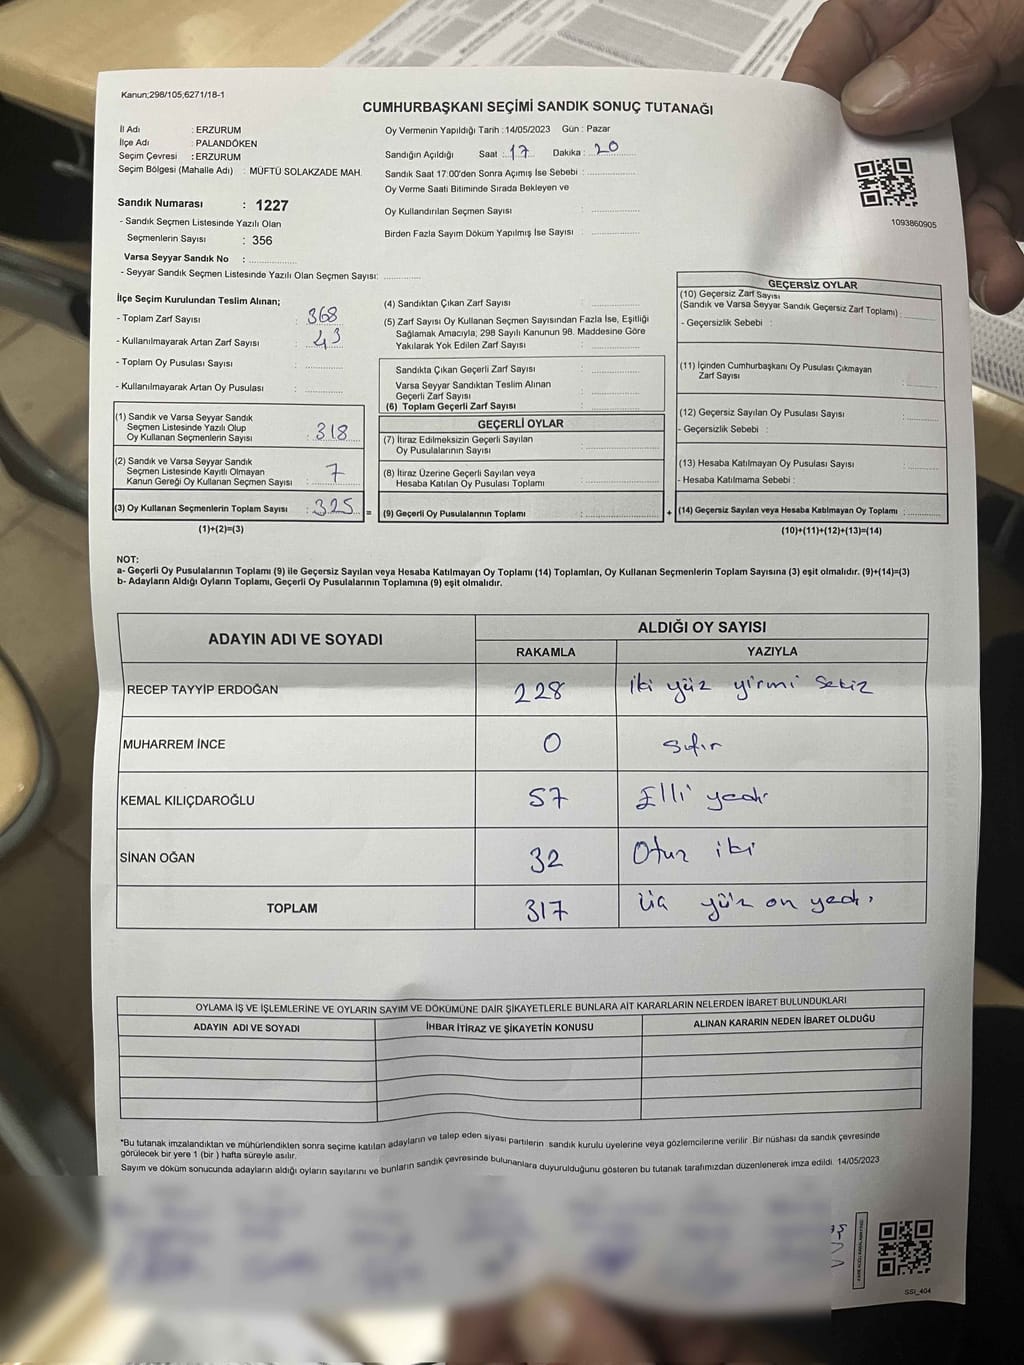 Kanun;298/105;6271/18-1
CUMHURBAŞKANI SEÇİMİ SANDIK SONUÇ TUTANAĞI
İl Adı : ERZURUM
İlçe Adı : PALANDÖKEN
Seçim Çevresi : ERZURUM
Seçim Bölgesi (Mahalle Adı) : MÜFTÜ SOLAKZADE MAH.
Oy Vermenin Yapıldığı Tarih :14/05/2023 Gün : Pazar
Sandığın Açıldığı Saat : 17 Dakika : 20
Sandık Saat 17:00'den Sonra Açımış İse Sebebi :
Oy Verme Saati Bitiminde Sırada Bekleyen ve
Oy Kullandırılan Seçmen Sayısı :
Birden Fazla Sayım Döküm Yapılmış İse Sayısı :
1093860905
Sandık Numarası : 1227
- Sandık Seçmen Listesinde Yazılı Olan
Seçmenlerin Sayısı : 356
Varsa Seyyar Sandık No :
- Seyyar Sandık Seçmen Listesinde Yazılı Olan Seçmen Sayısı:
İlçe Seçim Kurulundan Teslim Alınan;
- Toplam Zarf Sayısı : 368
- Kullanılmayarak Artan Zarf Sayısı : 43
- Toplam Oy Pusulası Sayısı :
- Kullanılmayarak Artan Oy Pusulası :
(1) Sandık ve Varsa Seyyar Sandık
Seçmen Listesinde Yazılı Olup
Oy Kullanan Seçmenlerin Sayısı : 318
(2) Sandık ve Varsa Seyyar Sandık
Seçmen Listesinde Kayıtlı Olmayan
Kanun Gereği Oy Kullanan Seçmen Sayısı : 7
(3) Oy Kullanan Seçmenlerin Toplam Sayısı : 325
(1)+(2)=(3)
(4) Sandıktan Çıkan Zarf Sayısı :
(5) Zarf Sayısı Oy Kullanan Seçmen Sayısından Fazla İse, Eşitliği
Sağlamak Amacıyla; 298 Sayılı Kanunun 98. Maddesine Göre
Yakılarak Yok Edilen Zarf Sayısı :
Sandıkta Çıkan Geçerli Zarf Sayısı :
Varsa Seyyar Sandıktan Teslim Alınan
Geçerli Zarf Sayısı :
(6) Toplam Geçerli Zarf Sayısı :
GEÇERLİ OYLAR
(7) İtiraz Edilmeksizin Geçerli Sayılan
Oy Pusulalarının Sayısı :
(8) İtiraz Üzerine Geçerli Sayılan veya
Hesaba Katılan Oy Pusulası Toplamı :
= (9) Geçerli Oy Pusulalarının Toplamı :
GEÇERSİZ OYLAR
(10) Geçersiz Zarf Sayısı
(Sandık ve Varsa Seyyar Sandık Geçersiz Zarf Toplamı) :
- Geçersizlik Sebebi :
(11) İçinden Cumhurbaşkanı Oy Pusulası Çıkmayan
Zarf Sayısı :
(12) Geçersiz Sayılan Oy Pusulası Sayısı :
- Geçersizlik Sebebi :
(13) Hesaba Katılmayan Oy Pusulası Sayısı :
- Hesaba Katılmama Sebebi :
+ (14) Geçersiz Sayılan veya Hesaba Katılmayan Oy Toplamı :
(10)+(11)+(12)+(13)=(14)
NOT:
a- Geçerli Oy Pusulalarının Toplamı (9) ile Geçersiz Sayılan veya Hesaba Katılmayan Oy Toplamı (14) Toplamları, Oy Kullanan Seçmenlerin Toplam Sayısına (3) eşit olmalıdır. (9)+(14)=(3)
b- Adayların Aldığı Oyların Toplamı, Geçerli Oy Pusulalarının Toplamına (9) eşit olmalıdır.
ADAYIN ADI VE SOYADI ALDIĞI OY SAYISI
RAKAMLA YAZIYLA
RECEP TAYYİP ERDOĞAN 228 iki yüz yirmi sekiz
MUHARREM İNCE 0 sıfır
KEMAL KILIÇDAROĞLU 57 Elli yedi
SİNAN OĞAN 32 Otuz iki
TOPLAM 317 üç yüz on yedi
OYLAMA İŞ VE İŞLEMLERİNE VE OYLARIN SAYIM VE DÖKÜMÜNE DAİR ŞİKAYETLERLE BUNLARA AİT KARARLARIN NELERDEN İBARET BULUNDUKLARI
ADAYIN ADI VE SOYADI İHBAR İTİRAZ VE ŞİKAYETİN KONUSU ALINAN KARARIN NEDEN İBARET OLDUĞU
*Bu tutanak imzalandıktan ve mühürlendikten sonra seçime katılan adayların ve talep eden siyasi partilerin sandık kurulu üyelerine veya gözlemcilerine verilir. Bir nüshası da sandık çevresinde
görülecek bir yere 1 (bir ) hafta süreyle asılır.
Sayım ve döküm sonucunda adayların aldığı oyların sayılarını ve bunların sandık çevresinde bulunanlara duyurulduğunu gösteren bu tutanak tarafımızdan düzenlenerek imza edildi. 14/05/2023
SSI_404